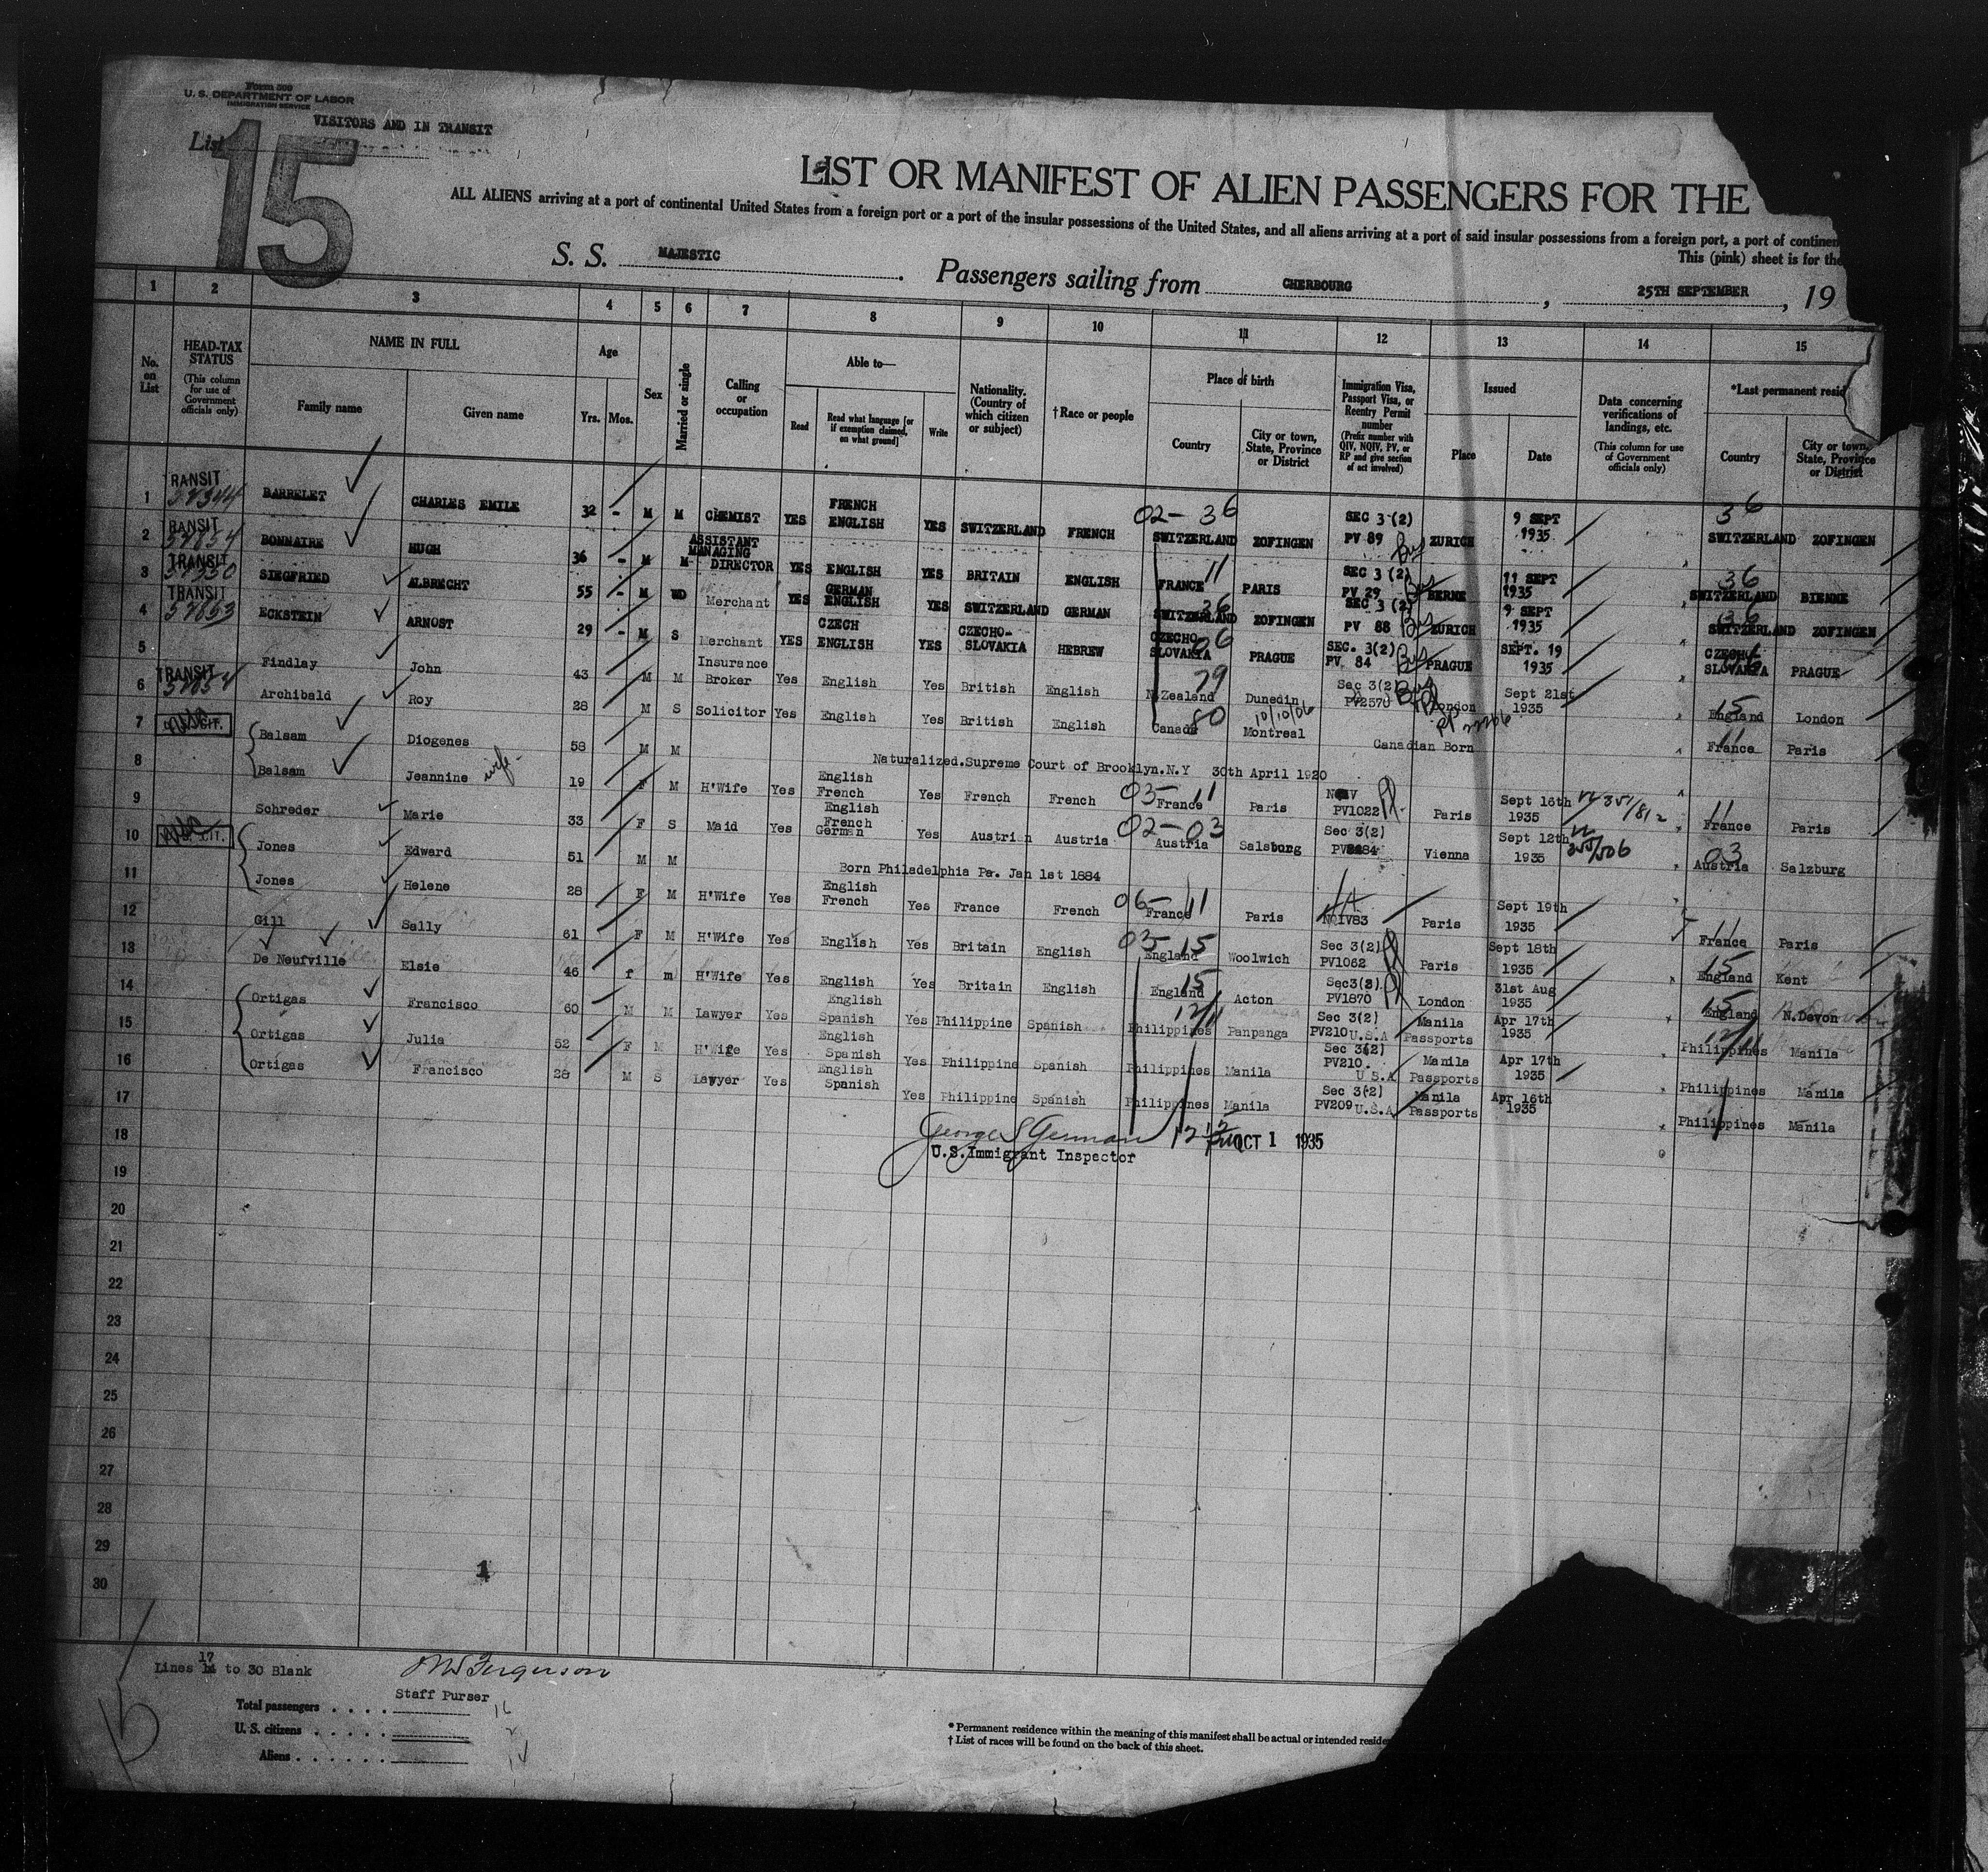 Form 500
U. S. DEPARTMENT OF LABOR
IMMIGRATION SERVICE
VISITORS AND IN TRANSIT
List 15
LIST OR MANIFEST OF ALIEN PASSENGERS FOR THE
ALL ALIENS arriving at a port of continental United States from a foreign port or a port of the insular possessions of the United States, and all aliens arriving at a port of said insular possessions from a foreign port, a port of continen
This (pink) sheet is for the
S. S. MAJESTIC. Passengers sailing from CHERBOURG, 25TH SEPTEMBER, 19
1 2 3 4 5 6 7 8 9 10 11 12 13 14 15
No. on List
HEAD-TAX STATUS
(This column for use of Government officials only)
NAME IN FULL
Family name Given name
Age
Yrs. Mos.
Sex
Married or single
Calling or occupation
Able to—
Read Read what language [or if exemption claimed, on what ground] Write
Nationality. (Country of which citizen or subject)
† Race or people
Place of birth
Country City or town, State, Province or District
Immigration Visa, Passport Visa, or Reentry Permit number
(Prefix number with QIV, NQIV, PV, or RP and give section of act involved)
Issued
Place Date
Data concerning verifications of landings, etc.
(This column for use of Government officials only)
*Last permanent resid
Country City or town, State, Province or District
1 RANSIT BARRELET CHARLES EMILE 32 - M M CHEMIST YES FRENCH ENGLISH YES SWITZERLAND FRENCH 02-36 SWITZERLAND ZOFINGEN SEC 3 (2) PV 89 ZURICH 9 SEPT 1935 36 SWITZERLAND ZOFINGEN
2 RANSIT BONMAIRE HUGH 36 - M M ASSISTANT MANAGING DIRECTOR YES ENGLISH YES BRITAIN ENGLISH FRANCE 11 PARIS SEC 3 (2) PV 29 BERNE 11 SEPT 1935 36 SWITZERLAND BIENNE
3 TRANSIT SIEGFRIED ALBRECHT 55 - M WD Merchant YES GERMAN ENGLISH YES SWITZERLAND GERMAN SWITZERLAND 36 ZOFINGEN SEC 3 (2) PV 88 ZURICH 9 SEPT 1935 36 SWITZERLAND ZOFINGEN
4 TRANSIT 57653 ECKSTEIN ARNOST 29 - M S Merchant YES CZECH ENGLISH YES CZECHO-SLOVAKIA HEBREW CZECHO SLOVAKIA 06 PRAGUE SEC. 3(2) PV 84 PRAGUE SEPT. 19 1935 CZECHO SLOVAKIA PRAGUE
5 Findlay John 43 M M Insurance Broker Yes English Yes British English N.Zealand 79 Dunedin Sec 3(2) PV2570 London Sept 21st 1935 15 England London
6 TRANSIT Archibald Roy 28 M S Solicitor Yes English Yes British English Canada 80 10/10/06 Montreal Canadian Born 11 France Paris
7 Balsam Diogenes 58 M M Naturalized.Supreme Court of Brooklyn.N.Y 30th April 1920
8 Balsam Jeannine wife 19 F M H'Wife Yes English French Yes French French 03 France 11 Paris PV1022 Paris Sept 16th 1935 11 France Paris
9 Schreder Marie 33 F S Maid Yes English French German Yes Austrian Austria 02-03 Austria Salsburg Sec 3(2) Vienna Sept 12th 1935 03 Austria Salzburg
10 Jones Edward 51 M M Born Philadelphia Pa. Jan 1st 1884
11 Jones Helene 28 F M H'Wife Yes English French Yes France French 06-11 France Paris NQIV83 Paris Sept 19th 1935 11 France Paris
12 Gill Sally 61 F M H'Wife Yes English Yes Britain English 03-15 England Woolwich Sec 3(2) PV1062 Paris Sept 18th 1935 15 England Kent
13 De Neufville Elsie 46 f m H'Wife Yes English Yes Britain English 15 England Acton Sec3(2) PV1870 London 31st Aug 1935 15 England N.Devon
14 Ortigas Francisco 60 M M Lawyer Yes English Spanish Yes Philippine Spanish 12/11 Philippines Panpanga Sec 3(2) PV210 U.S.A Manila Passports Apr 17th 1935 12/11 Philippines Manila
15 Ortigas Julia 52 F M H'Wife Yes English Spanish Yes Philippine Spanish Philippines Manila Sec 3(2) PV210. U S.A Manila Passports Apr 17th 1935 Philippines Manila
16 Ortigas Francisco 28 M S Lawyer Yes English Spanish Yes Philippine Spanish Philippines Manila Sec 3(2) PV209 U.S.A Manila Passports Apr 16th 1935 Philippines Manila
17
George S German OCT 1 1935
18
U.S.Immigrant Inspector
19
20
21
22
23
24
25
26
27
28
29
30
1
Lines 17 to 30 Blank
Ferguson
Staff Purser
Total passengers . . . . 16
U. S. citizens . . . . . 2
Aliens . . . . . . 14
* Permanent residence within the meaning of this manifest shall be actual or intended reside
† List of races will be found on the back of this sheet.